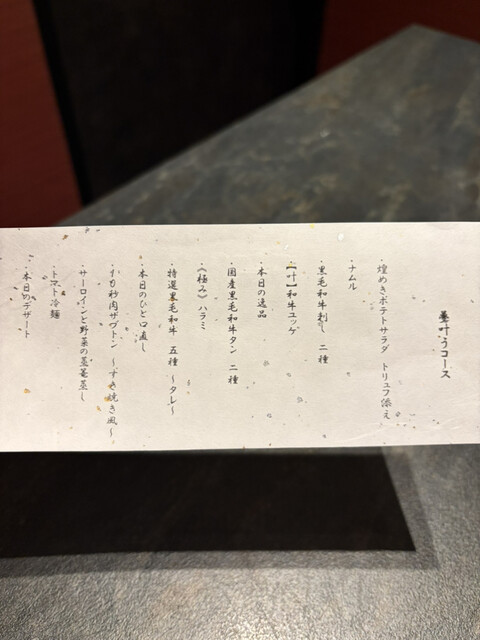 叶うコース
・煌めきポテトサラダ　トリュフ添え
・ナムル
・黒毛和牛刺し　二種
・【叶】和牛ユッケ
・本日の逸品
・国産黒毛和牛タン　二種
・《極み》ハラミ
・特選黒毛和牛　五種　～タレ～
・本日のひと口直し
・秒肉ザブトン　～すき焼き風～
・サーロインと野菜の蒸籠蒸し
・トマト冷麺
・本日のデザート